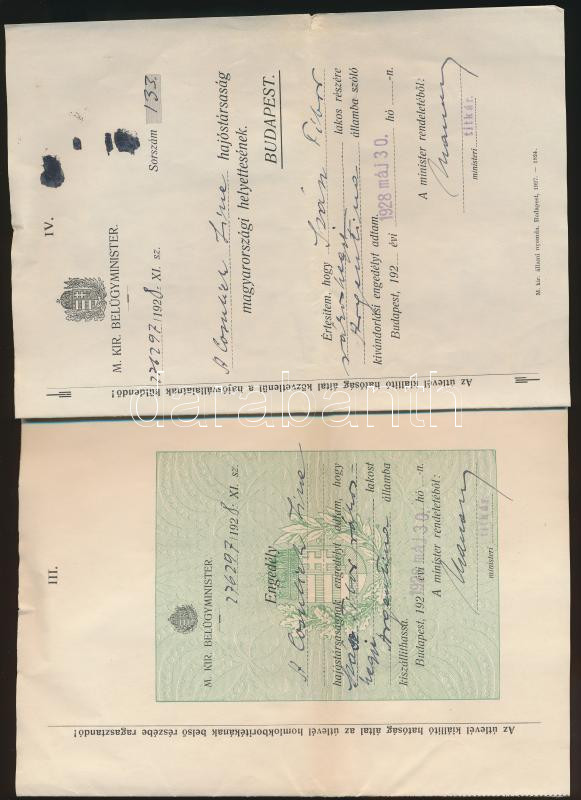 IV.
M. KIR. BELÜGYMINISTER.
226297/1928. XI. sz.
Sorszám 133.
A Cosulich Line hajóstársaság
magyarországi helyettesének.
BUDAPEST.
Értesítem, hogy Iván Tibor
rákoshegyi lakos részére
Argentina államba szóló
kivándorlási engedélyt adtam.
Budapest, 192... évi 1928 máj 30. hó ...-n.
A minister rendeletéből:
ministeri titkár.
M. kir. állami nyomda. Budapest, 1927. — 1894.
Az útlevél kiállító hatóság által közvetlenül a hajósvállalatnak küldendő!
darabanth
III.
M. KIR. BELÜGYMINISTER
226297/1928. XI. sz.
Engedély
A Cosulich Line
hajóstársaságnak engedélyt adtam, hogy
Iván Tibor rákos
hegyi lakost
Argentina államba
kiszállíthassa.
Budapest, 192 évi 1928 máj 30. hó ...-n.
A minister rendeletéből:
ministeri titkár.
Az útlevél kiállító hatóság által az útlevél homlokborítékának belső részébe ragasztandó!